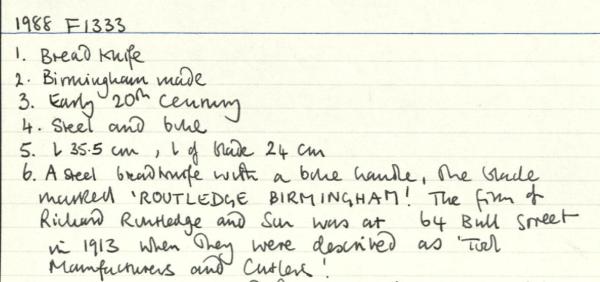 1988 F1333
1. Bread knife
2. Birmingham made
3. Early 20th Century
4. Steel and bone
5. L 35.5 cm, L of blade 24 cm
6. A steel breadknife with a bone handle, the blade
marked 'ROUTLEDGE BIRMINGHAM'. The firm of
Richard Routledge and Son was at 64 Bull Street
in 1913 when they were described as 'Tool
Manufacturers and Cutlers'.